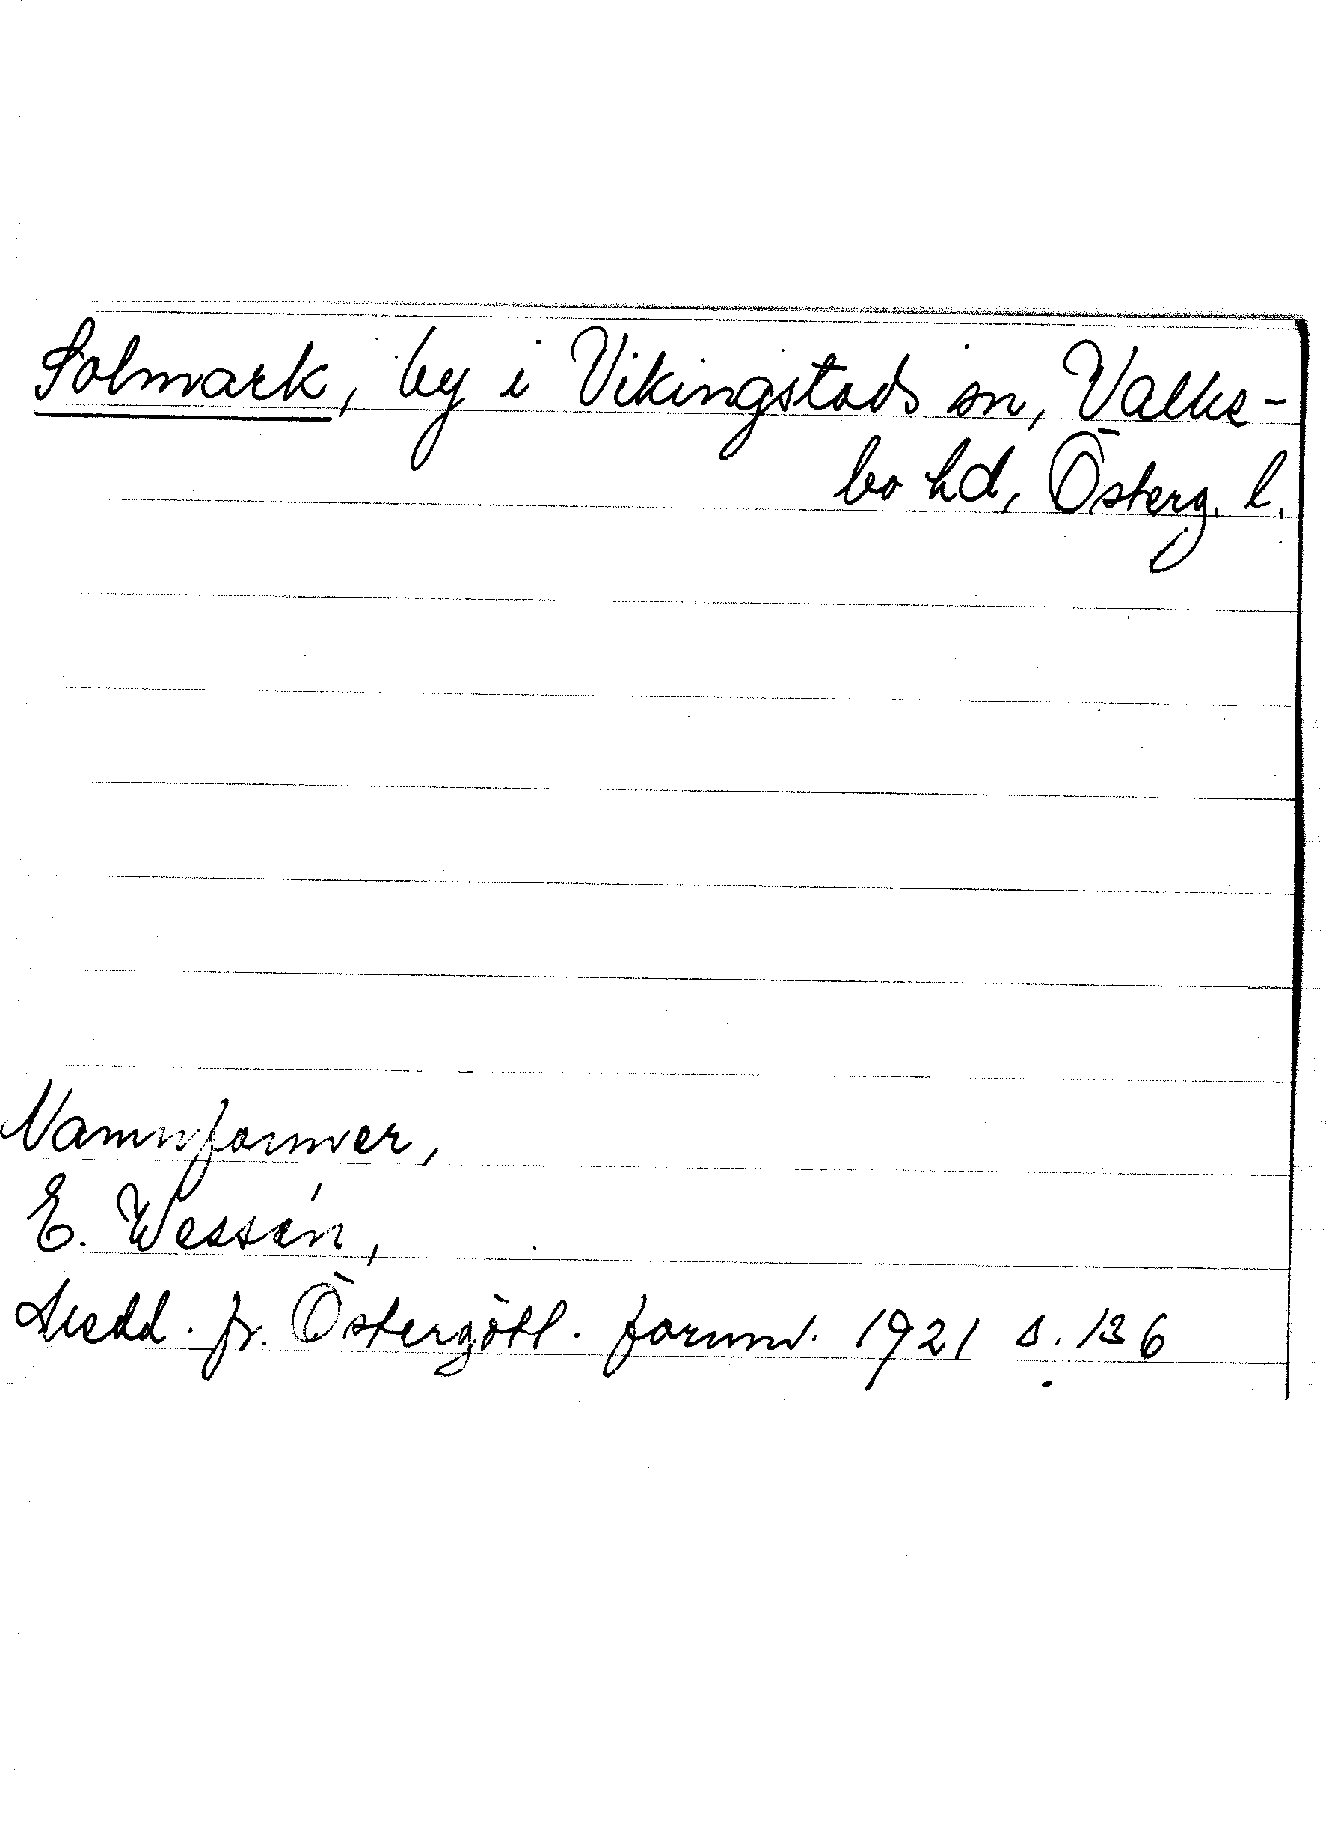 Solmark, by i Vikingstads sn, Valke-
bo hd, Österg. l.
Namnformer,
E. Wessén,
Medd. fr. Östergötl. fornm. 1921 s. 136